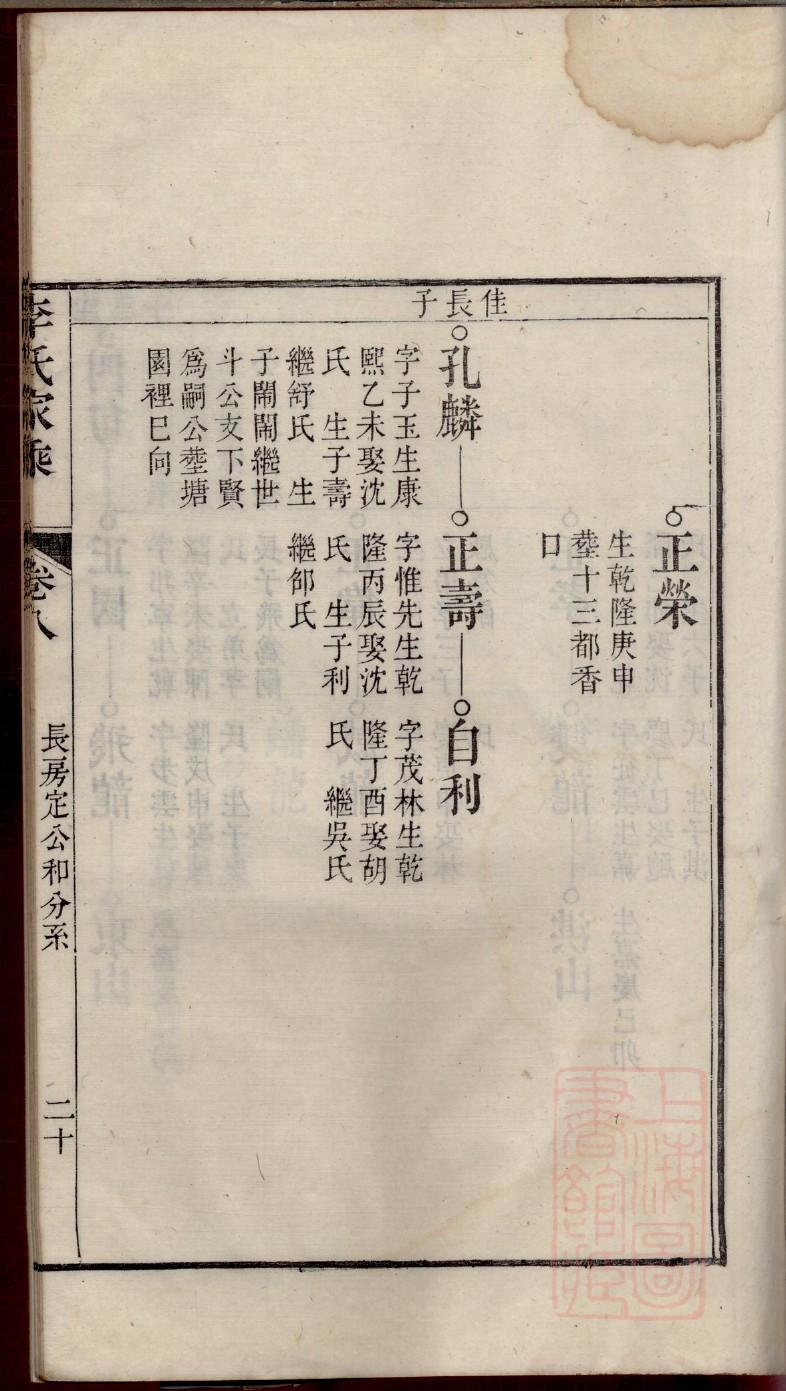 正榮
生乾隆庚申
塟十三都香
口
佳長子
孔麟
字子玉生康
熙乙未娶沈
氏　生子壽
繼舒氏　生
子鬧鬧繼世
斗公支下賢
爲嗣公塟塘
園裡巳向
正壽
字惟先生乾
隆丙辰娶沈
氏　生子利
繼邰氏
自利
字茂林生乾
隆丁酉娶胡
氏　繼吳氏
李氏家乘
卷八
長房定公和分系
二十
上海圖
書館藏